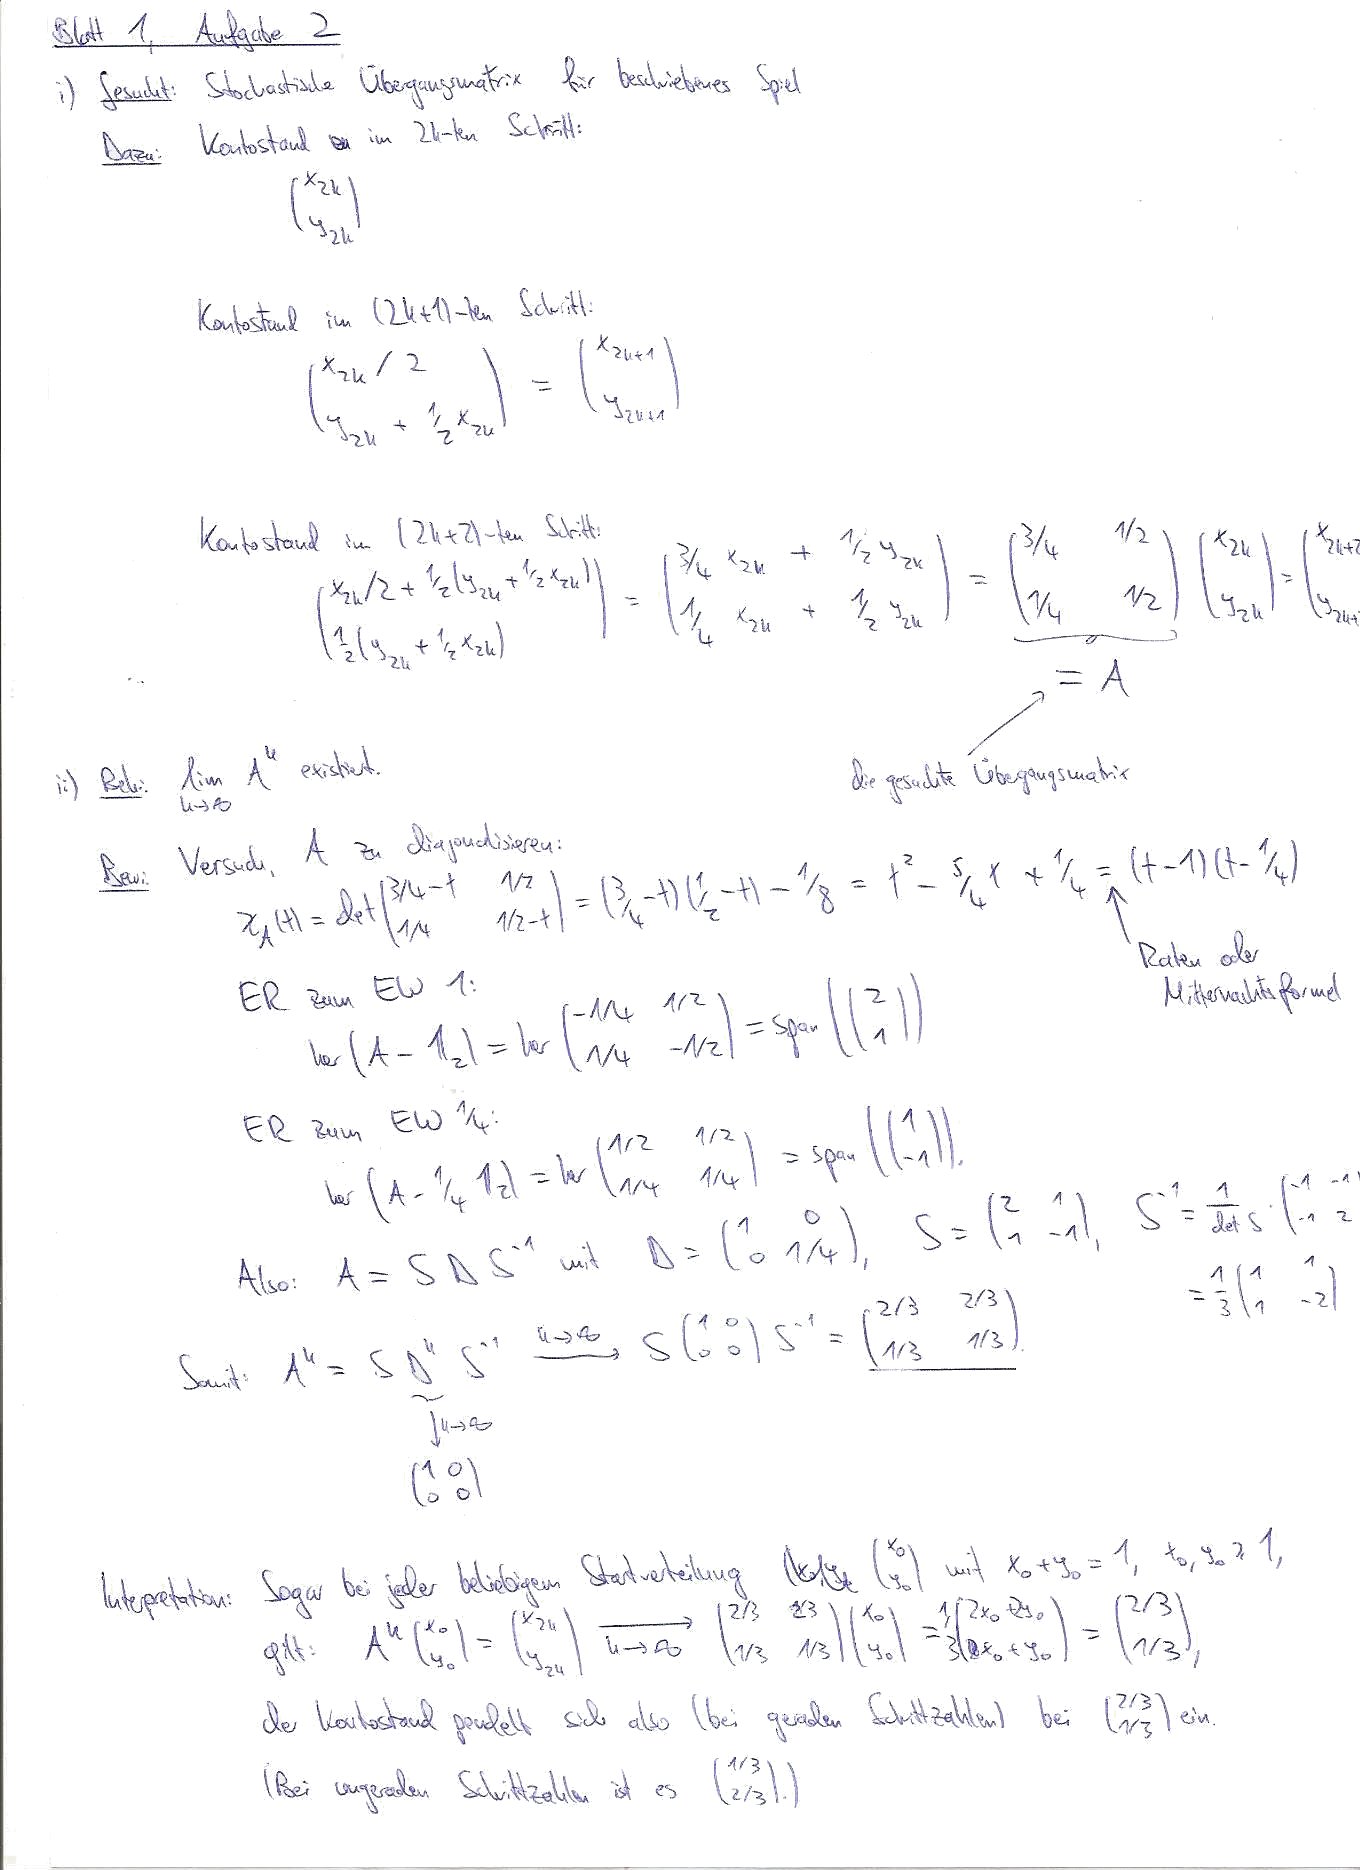 Blatt 1, Aufgabe 2
i) Gesucht: Stochastische Übergangsmatrix für beschriebenes Spiel
Dazu: Kontostand im 2k-ten Schritt:
(x_{2k}
y_{2k})
Kontostand im (2k+1)-ten Schritt:
(x_{2k} / 2
y_{2k} + 1/2 x_{2k}) = (x_{2k+1}
y_{2k+1})
Kontostand im (2k+2)-ten Schritt:
(x_{2k}/2 + 1/2(y_{2k} + 1/2 x_{2k})
1/2(y_{2k} + 1/2 x_{2k})) = (3/4 x_{2k} + 1/2 y_{2k}
1/4 x_{2k} + 1/2 y_{2k}) = (3/4 1/2
1/4 1/2) (x_{2k}
y_{2k}) = (x_{2k+2}
y_{2k+
= A
die gesuchte Übergangsmatrix
ii) Beh: lim_{k→∞} A^k existiert.
Bew: Versuch, A zu diagonalisieren:
χ_A(t) = det(3/4-t 1/2
1/4 1/2-t) = (3/4-t)(1/2-t) - 1/8 = t² - 5/4 t + 1/4 = (t-1)(t-1/4)
Raten oder
Mitternachtsformel
ER zum EW 1:
ker(A - 1_2) = ker(-1/4 1/2
1/4 -1/2) = span((2
1))
ER zum EW 1/4:
ker(A - 1/4 1_2) = ker(1/2 1/2
1/4 1/4) = span((1
-1)).
Also: A = S D S^{-1} mit D = (1 0
0 1/4), S = (2 1
1 -1), S^{-1} = 1/det S · (-1 -1
-1 2
= 1/3 (1 1
1 -2)
Somit: A^k = S D^k S^{-1} →^{k→∞} S (1 0
0 0) S^{-1} = (2/3 2/3
1/3 1/3).
↓ k→∞
(1 0
0 0)
Intepretation: Sogar bei jeder beliebigem Startverteilung (x_0
y_0) mit x_0 + y_0 = 1, x_0, y_0 ≥ 1,
gilt: A^k (x_0
y_0) = (x_{2k}
y_{2k}) →_{k→∞} (2/3 2/3
1/3 1/3)(x_0
y_0) = 1/3 (2x_0 + 2y_0
x_0 + y_0) = (2/3
1/3),
der Kontostand pendelt sich also (bei geraden Schrittzahlen) bei (2/3
1/3) ein.
(Bei ungeraden Schrittzahlen ist es (1/3
2/3).)